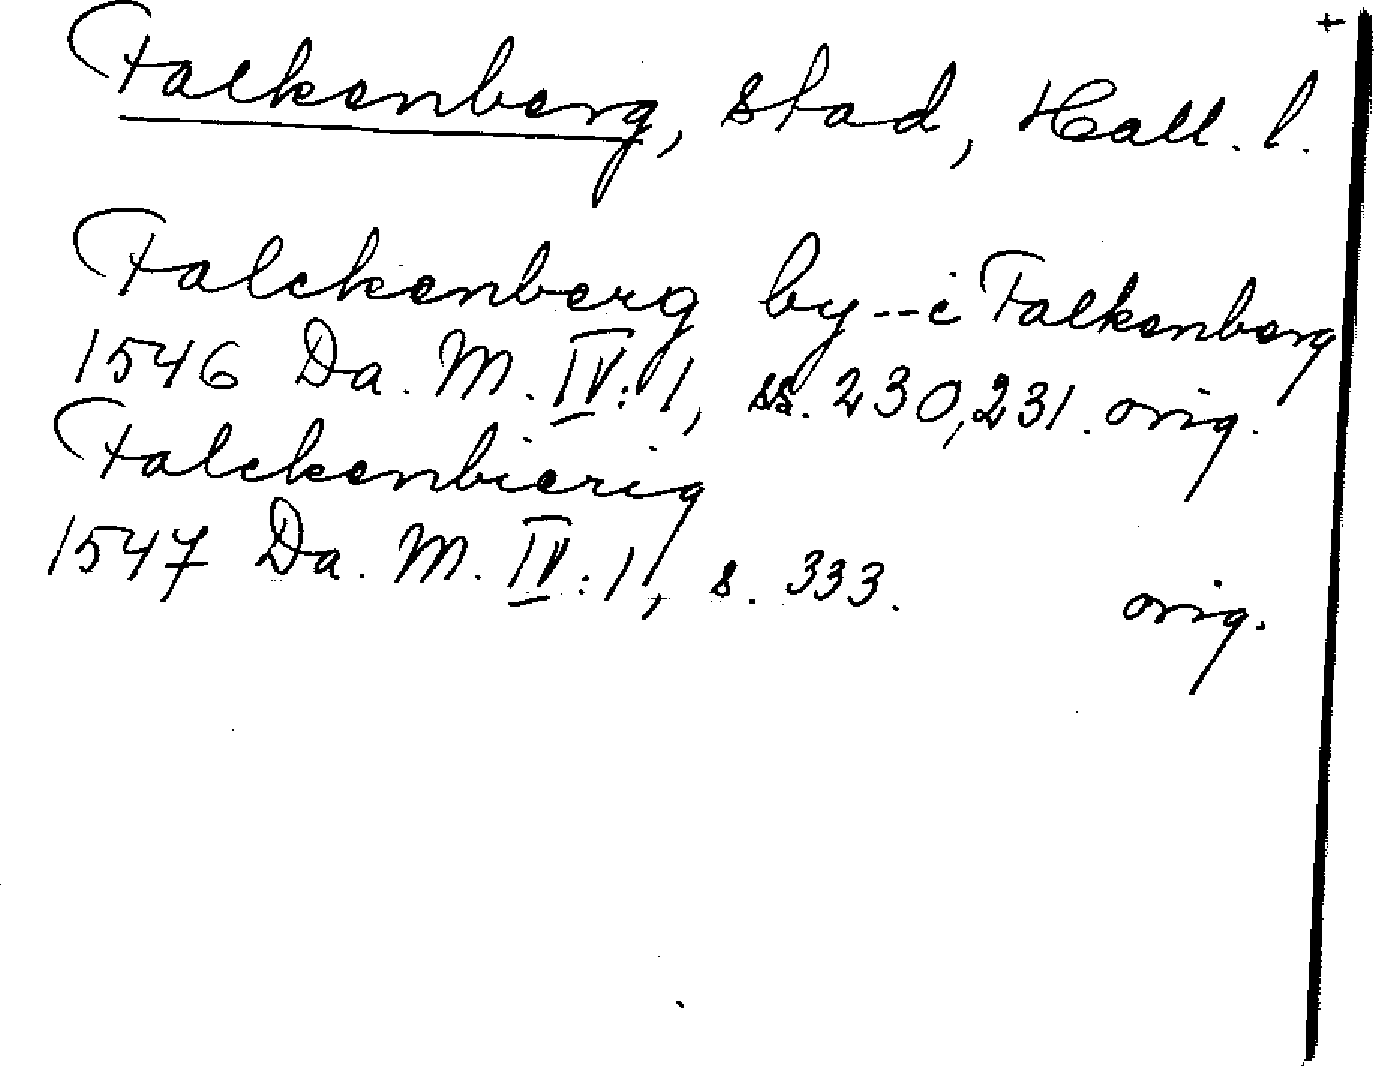 +
Falkenberg, stad, Hall. l.
Falckenberg by--i Falkenberg
1546 Da. M. IV:1, ss. 230,231. orig.
Falckenbierig
1547 Da. M. IV:1, s. 333. orig.